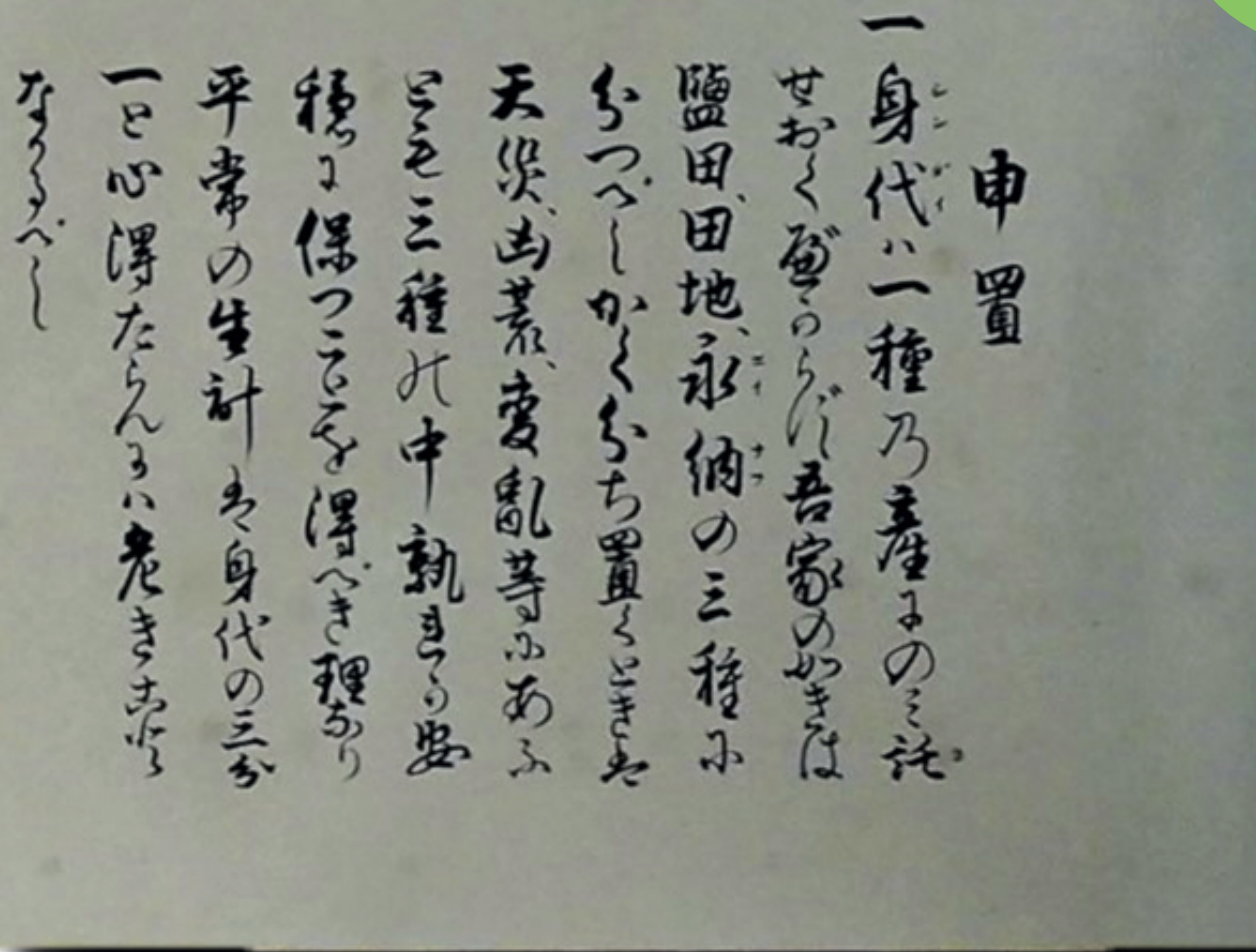 申置
一身代ハ一種乃産にのミ託
せおくべからず吾家の如きは
鹽田、田地、永納の三種に
分つべしかく分ち置くときは
天災、凶荒、変亂等にあふ
とも三種の中孰れか安
穏に保つことを得べき理なり
平常の生計は身代の三分
一と心得たらんにハ危きこと
なかるべし